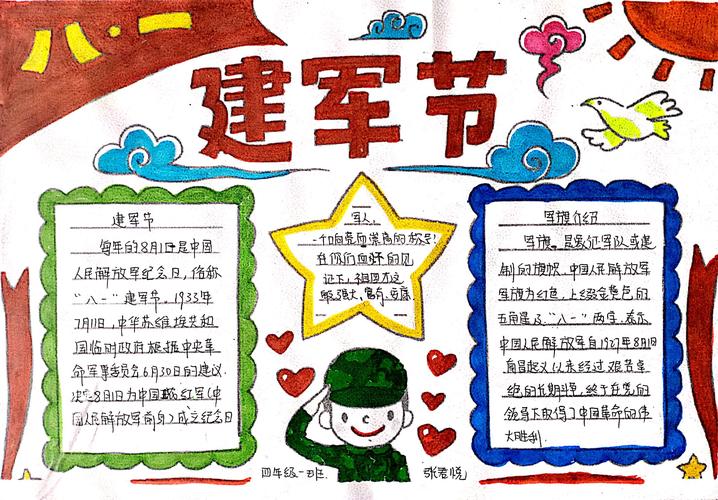 八·一
建军节
建军节
每年的8月1日是中国
人民解放军纪念日，俗称
"八一"建军节。1933年
7月11日，中华苏维埃共和
国临时政府根据中央革
命军事委员会6月30日的建议，
决8月1日为中国红军(中
国人民解放军前身)成立纪念日
军人，
一个响亮而崇高的称号!
在你们血肝的见
证下，祖国才这
富
军旗介绍
军旗，是象征军队或建
制的旗帜，中国人民解放军
军旗为红色，上缀金黄色的
五角星及"八一"两字，表示
中国人民解放军自1927年8月1日
南昌起义以来经过艰苦卓
绝的长期斗争，终于在党的
领导下取得了中国革命的伟
大胜利.
四年级一班
张君悦